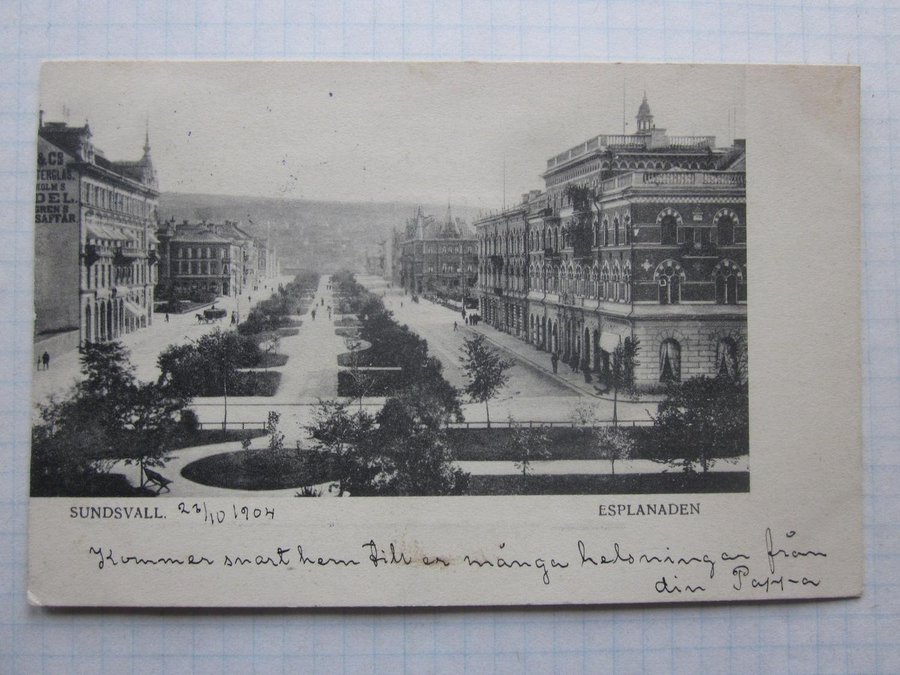 & CO
TERGLAS.
HOLMS
DEL.
GREN'S
SAFFÄR
SUNDSVALL. 23/10 1904
ESPLANADEN
Kommer snart hem till er många helsningar från
din Pappa